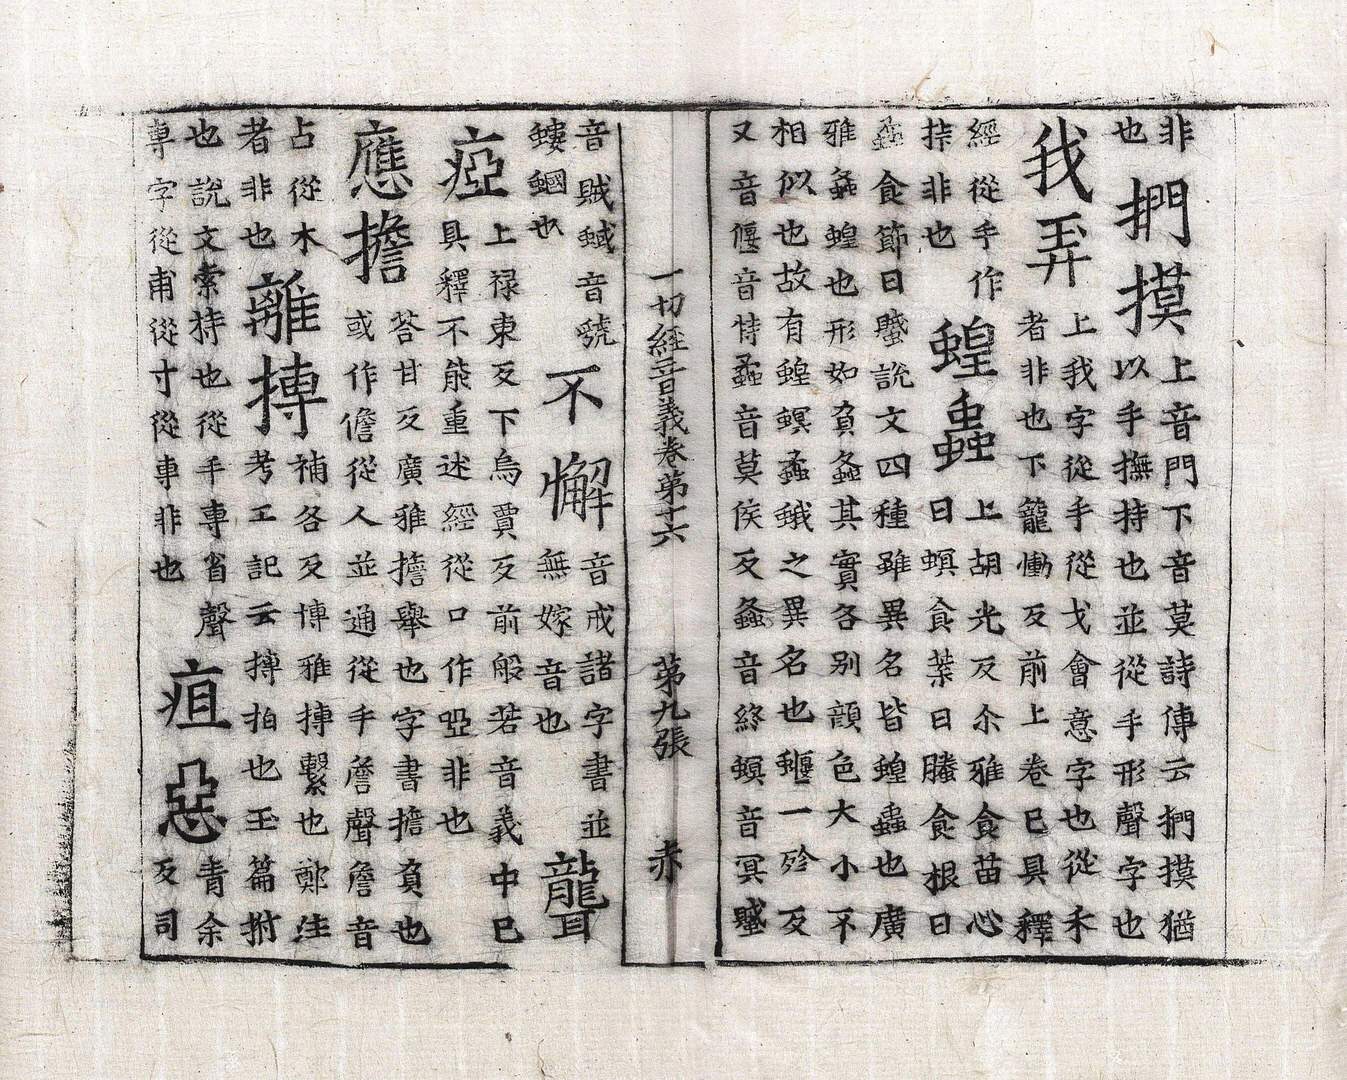 非
也
捫摸
上音門下音莫詩傳云捫摸猶
以手撫持也並從手形聲字也
我弄
上我字從手從戈會意字也從禾
者非也下籠慟反前上卷已具釋
經從手作
挵非也
蝗蟲
上胡光反尒雅食苗心
曰螟食葉曰螣食根曰
蟊食節曰蠈說文四種雖異名皆蝗蟲也廣
雅螽蝗也形如負螽其實各別顔色大小不
相似也故有蝗螟蟊蛾之異名也蝘一殄反
又音偃音恃蟊音莫侯反螽音終螟音冥蠈
一切經音義卷第十六 第九張 赤
音賊蟘音號
螻蟈也
不懈
音戒諸字書並
無嫁音也
聾
瘂
上禄東反下烏賈反前般若音義中已
具釋不能重述經從口作啞非也
應擔
荅甘反廣雅擔舉也字書擔負也
或作儋從人並通從手詹聲詹音
占從木
者非也
離搏
補各反博雅搏繫也鄭注
考工記云搏拍也玉篇拊
也說文索持也從手專省聲
專字從甫從寸從專非也
疽惡
青余
反司